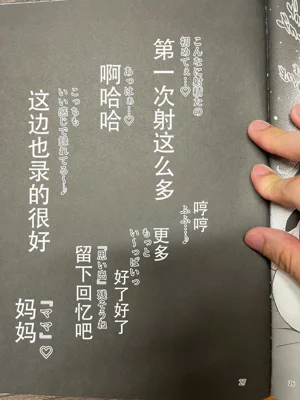 こんなに射精たの
初めてぇ…♡
第一次射这么多
あっはぁ…♡
啊哈哈
こっちも
いい感じで録れてる〜♪
这边也录的很好
哼哼
ふふ…♪
更多
もっと
い〜っぱいっ
好了好了
『思い出』残そうね
留下回忆吧
『ママ』♡
妈妈
27
26